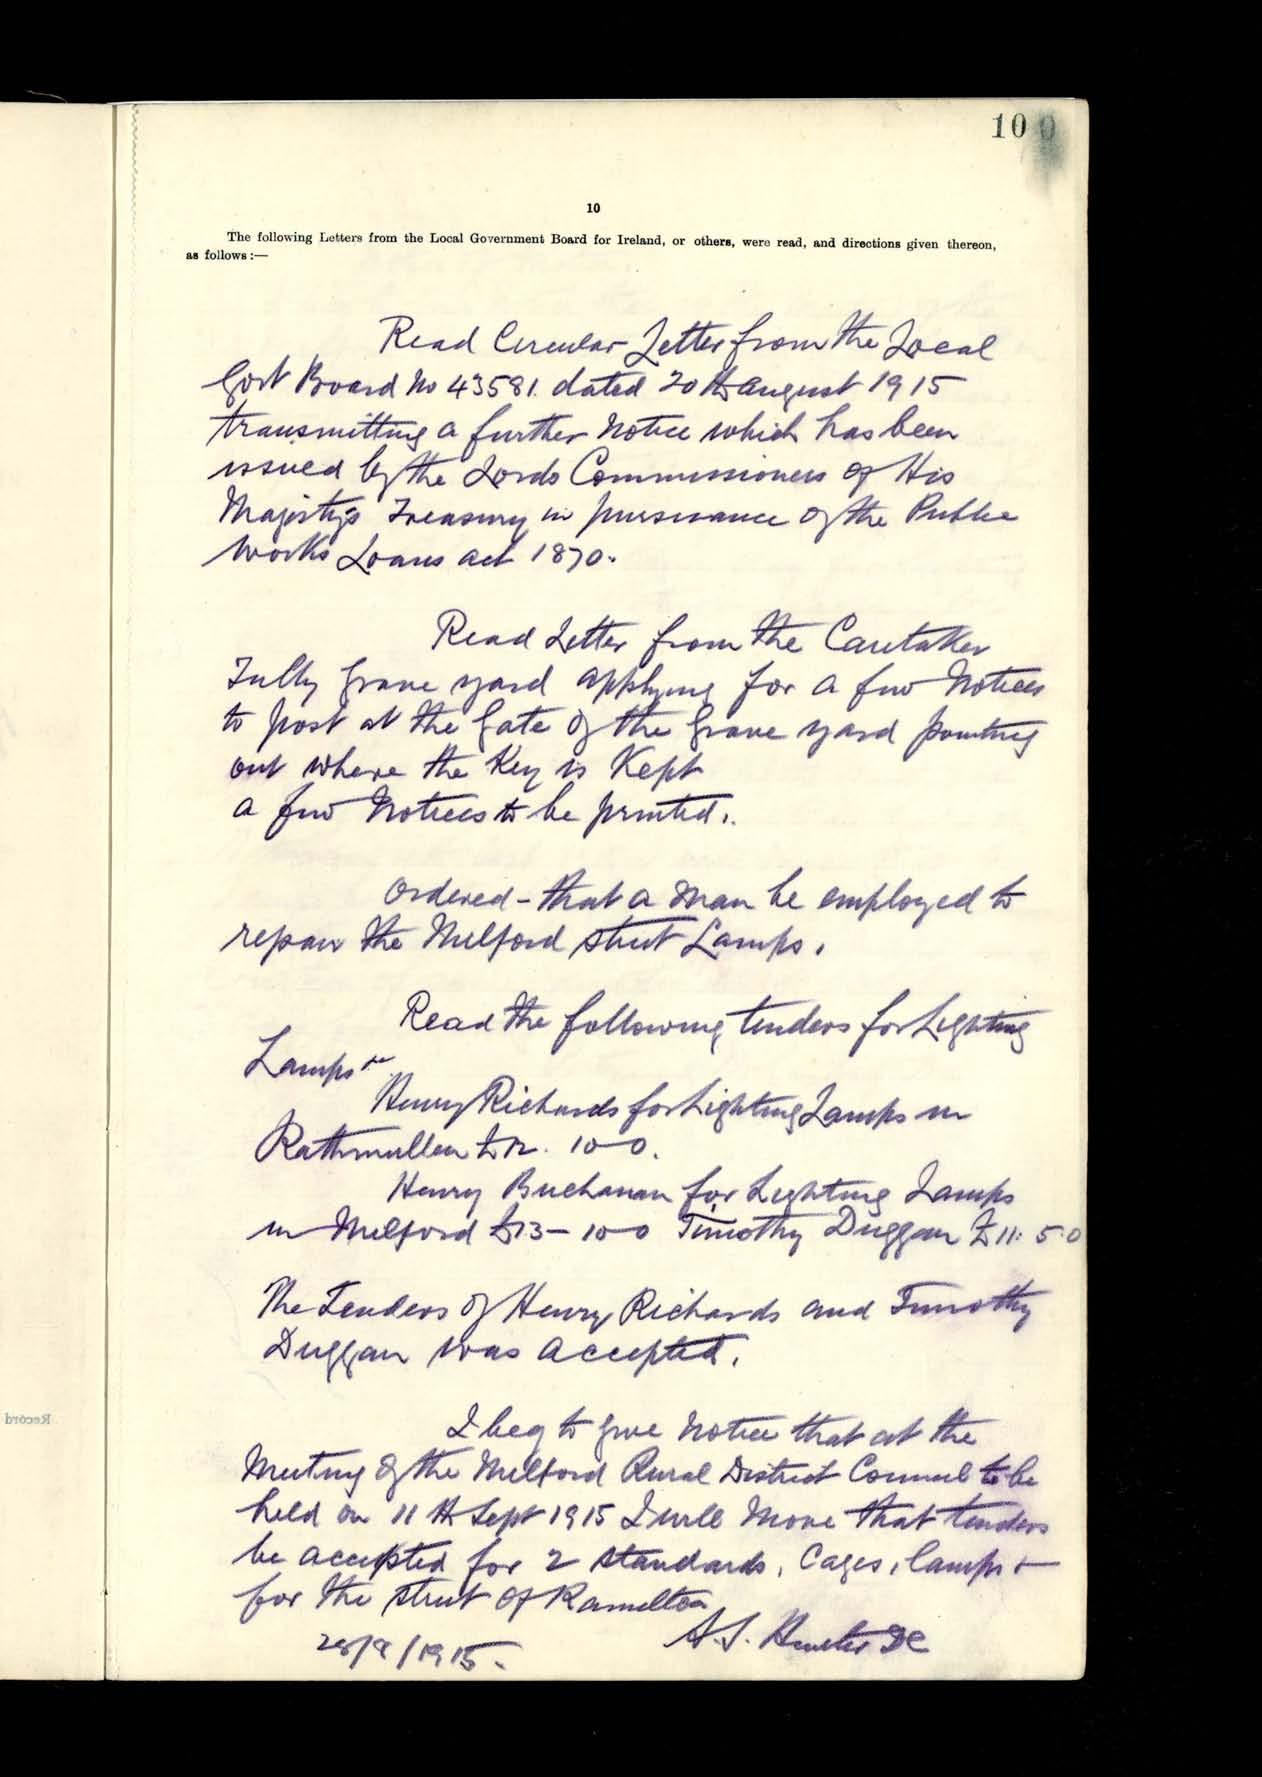 100
10
The following Letters from the Local Government Board for Ireland, or others, were read, and directions given thereon,
as follows :—
Read Circular Letter from the Local
Govt Board No 43581. dated 20th August 1915
transmitting a further Notice which has been
issued by the Lords Commissioners of His
Majesty's Treasury in pursuance of the Public
Works Loans act 1870.
Read Letter from the Caretaker
Tully Grave yard applying for a few Notices
to post at the Gate of the Grave yard pointing
out where the Key is Kept
a few Notices to be printed.
Ordered - that a man be employed to
repair the Milford street Lamps.
Read the following tenders for Lighting
Lamps
Henry Richards for Lighting Lamps in
Rathmullen £12. 10-0.
Henry Buchanan for Lighting Lamps
in Milford £13-10-0 Timothy Duggan £11: 5:0
The Tenders of Henry Richards and Timothy
Duggan was accepted.
I beg to give Notice that at the
Meeting of the Milford Rural District Council to be
held on 11th Sept 1915 I will Move that tenders
be accepted for 2 standards, Cages, lamps +
for the street of Ramelton
A.S. Hunter DC
28/8/1915.
Record